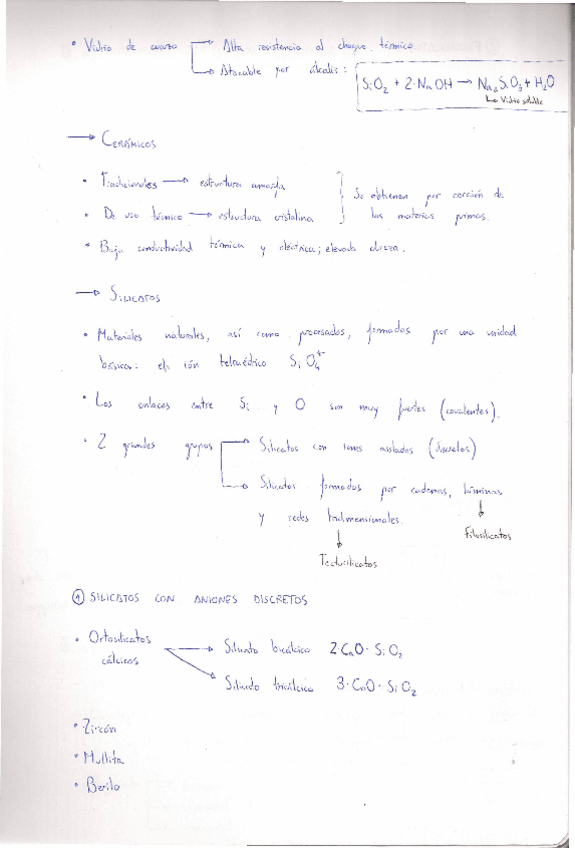 • Vidrio de cuarzo → Alta resistencia al choque térmico
→ Atacable por álcalis:
SiO₂ + 2·NaOH → Na₂SiO₃ + H₂O
↳ Vidrio soluble
→ CERÁMICOS
• Tradicionales → estructura amorfa
• De uso técnico → estructura cristalina
} Se obtienen por cocción de
las materias primas.
• Baja conductividad térmica y eléctrica; elevada dureza.
→ SILICATOS
• Materiales naturales, así como procesados, formados por una unidad
básica: el ión tetraédrico SiO₄⁴⁻
• Los enlaces entre Si y O son muy fuertes (covalentes).
• 2 grandes grupos → Silicatos con iones aislados (discretos)
→ Silicatos formados por cadenas, láminas
y redes tridimensionales.
↓ Filosilicatos
↓ Tectosilicatos
① SILICATOS CON ANIONES DISCRETOS
• Ortosilicatos → Silicato bicálcico 2·CaO·SiO₂
cálcicos → Silicato tricálcico 3·CaO·SiO₂
• Zircón
• Mullita
• Berilo